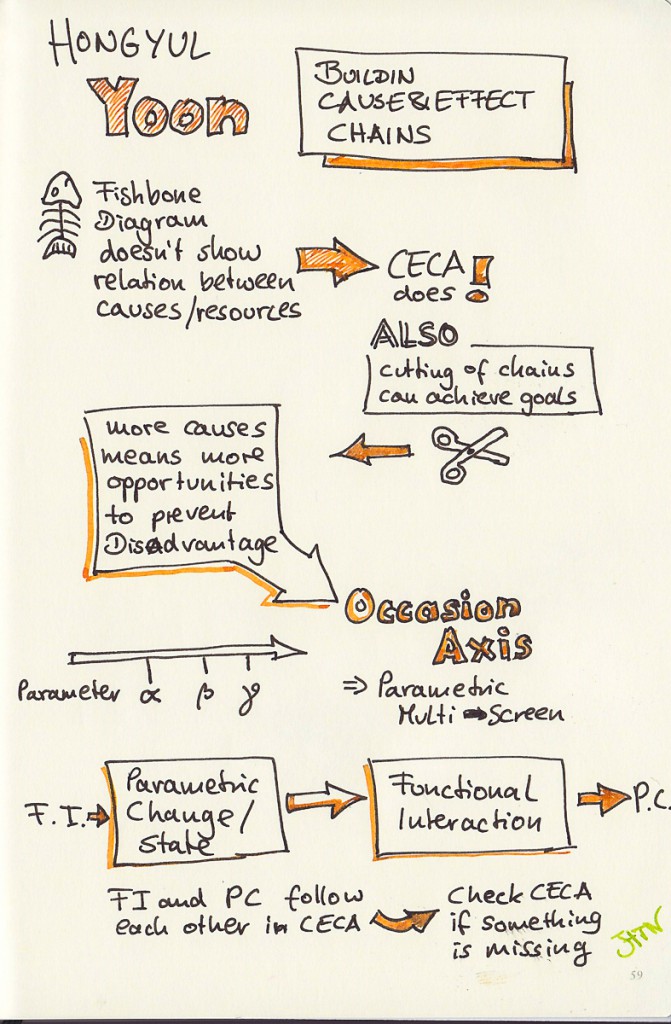 HONGYUL
Yoon
BUILDIN
CAUSE&EFFECT
CHAINS
Fishbone
Diagram
doesn't show
relation between
causes/resources
CECA
does!
ALSO
cutting of chains
can achieve goals
more causes
means more
opportunities
to prevent
Disadvantage
Occasion
Axis
Parameter α β γ
⇒ Parametric
Multi ➡Screen
F.I.
Parametric
Change/
State
Functional
Interaction
P.C.
FI and PC follow
each other in CECA
Check CECA
if something
is missing
59